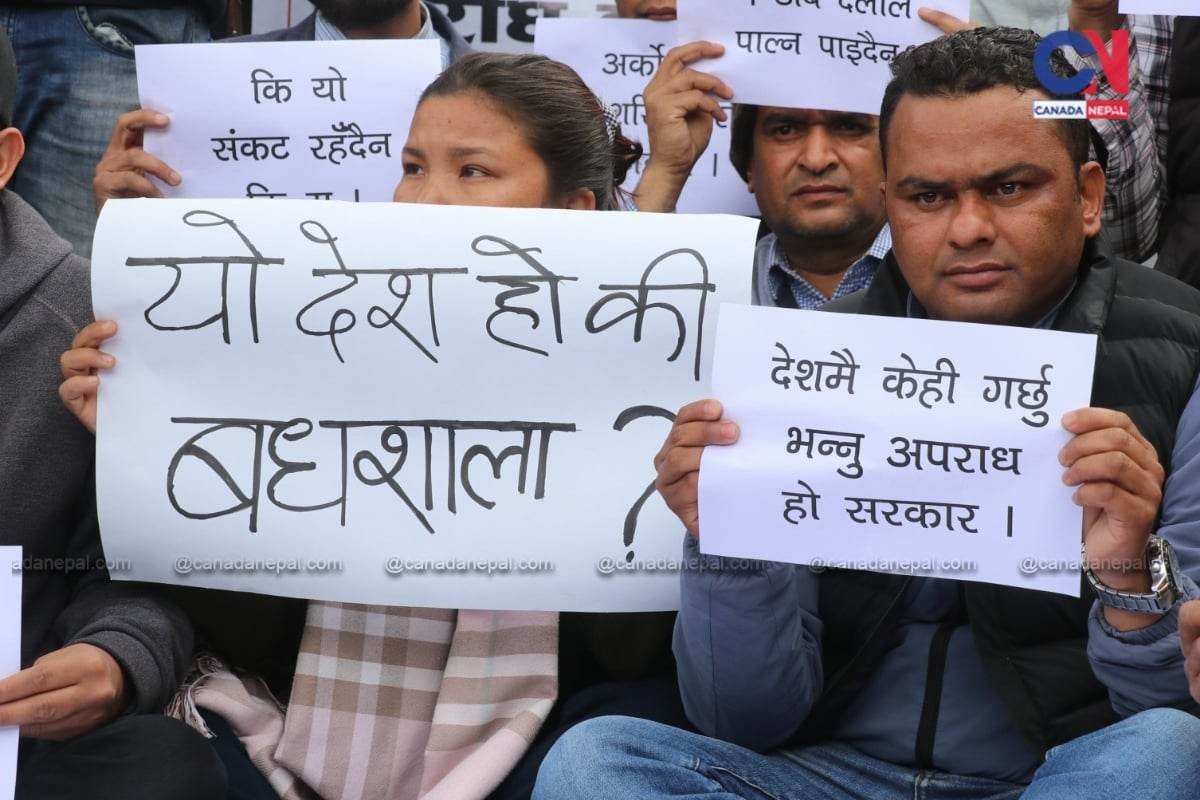 । अब दलाल
पाल्न पाइदैन
CN
CANADA NEPAL
कि यो
संकट रहँदैन
अर्को
यो देश हो की
बधशाला ?
देशमै केही गर्छु
भन्नु अपराध
हो सरकार ।
adanepal.com @canadanepal.com @canadanepal.com @canadanepal.com @canadanepal.com